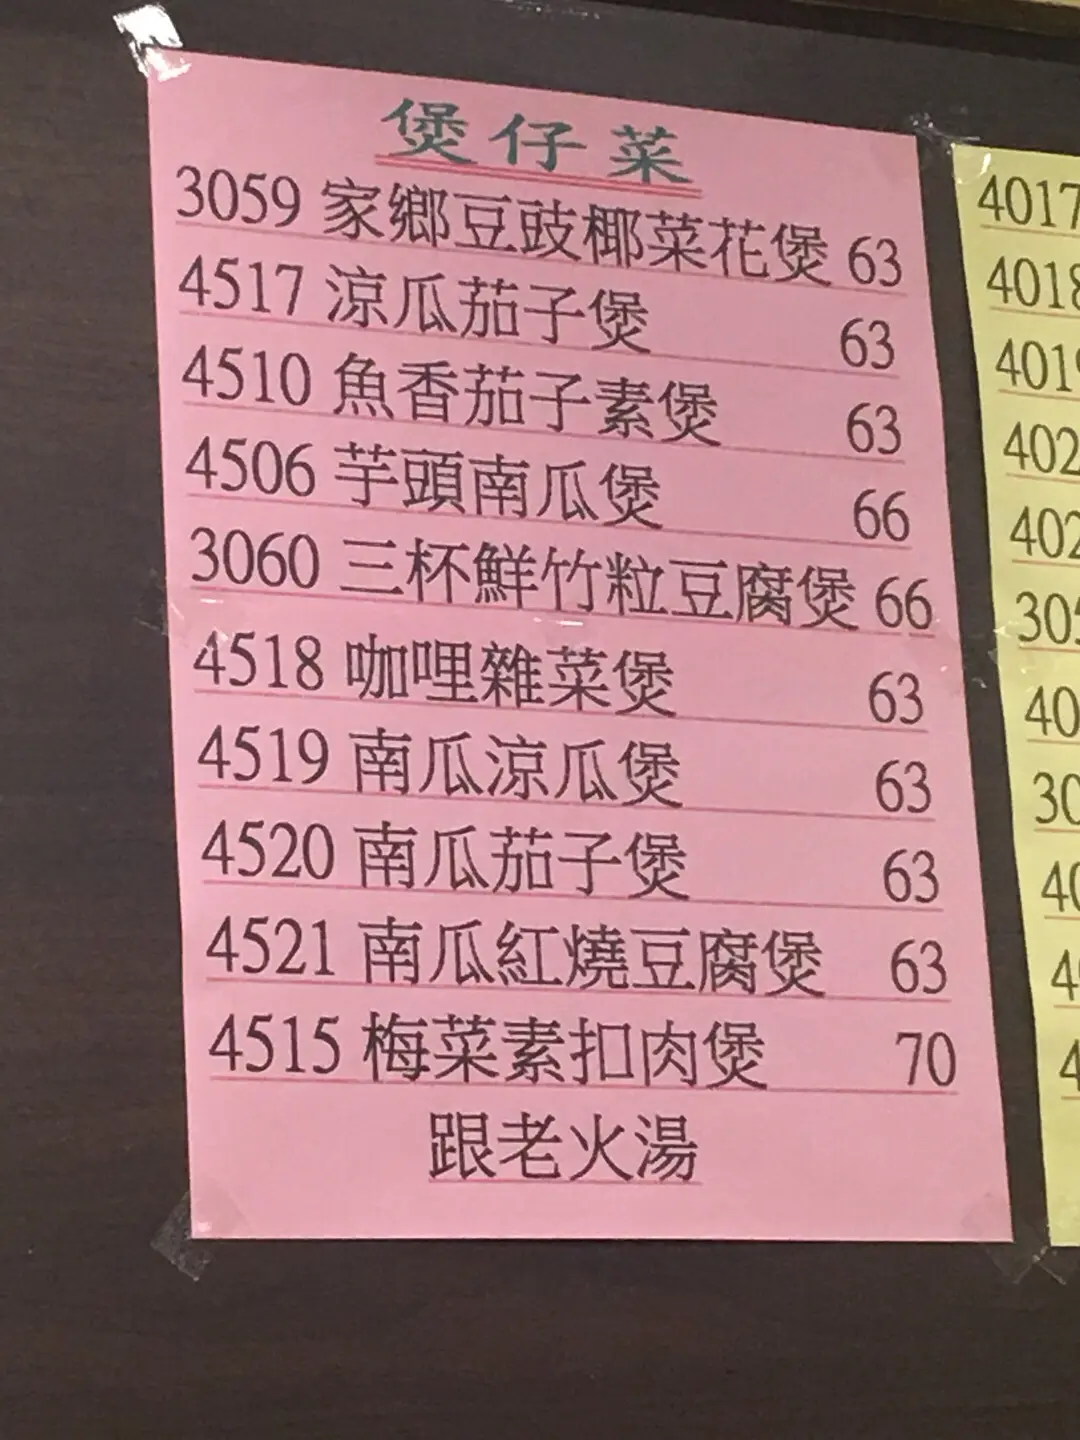 煲仔菜
3059 家鄉豆豉椰菜花煲 63
4517 涼瓜茄子煲 63
4510 魚香茄子素煲 63
4506 芋頭南瓜煲 66
3060 三杯鮮竹粒豆腐煲 66
4518 咖哩雜菜煲 63
4519 南瓜涼瓜煲 63
4520 南瓜茄子煲 63
4521 南瓜紅燒豆腐煲 63
4515 梅菜素扣肉煲 70
跟老火湯
4017
4018
4019
402
402
305
40
30
40
4
4